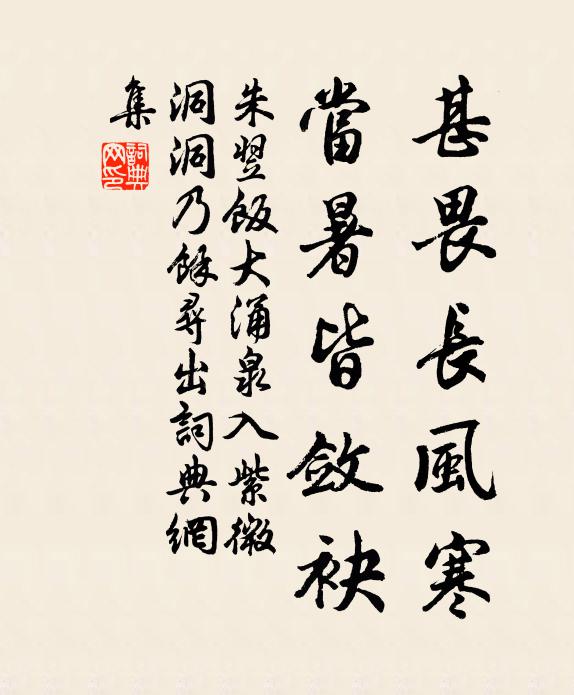 甚畏長風寒
當暑皆斂袂
朱翌飯大涌泉入紫微
洞洞乃餘尋出詞典網
集
詞典網印